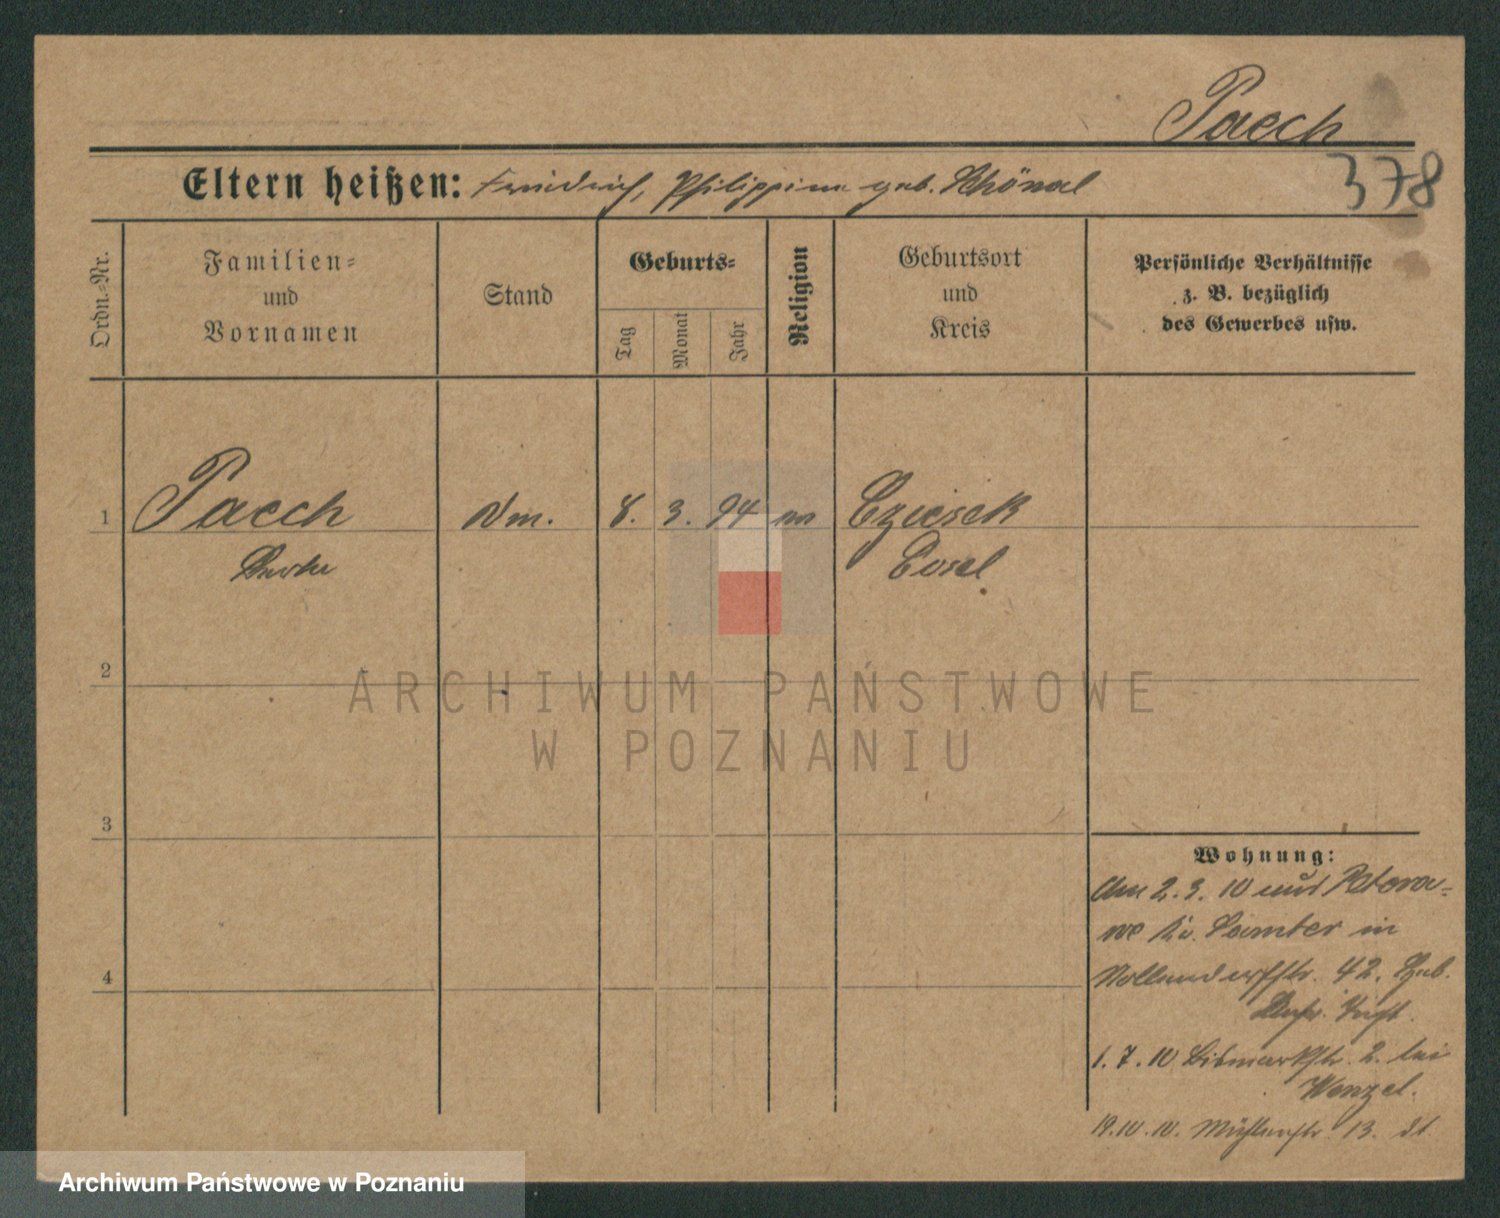 Paech
Eltern heißen: Friedrich, Philippine geb. Schönal
378
Ordn.-Nr.
Familien-
und
Vornamen
Stand
Geburts-
Tag
Monat
Jahr
Religion
Geburtsort
und
Kreis
Persönliche Verhältnisse
z. B. bezüglich
des Gewerbes usw.
1 Paech 8. 3. 94
Cosel
2
ARCHIWUM PAŃSTWOWE
W POZNANIU
3
Wohnung:
Am 2. 3. 10 aus
Samter in
4
42.
1. 7. 10 Bismarckstr. 2. bei
Wenzel.
19. 10. 10. Mühlenstr. 13.
Archiwum Państwowe w Poznaniu